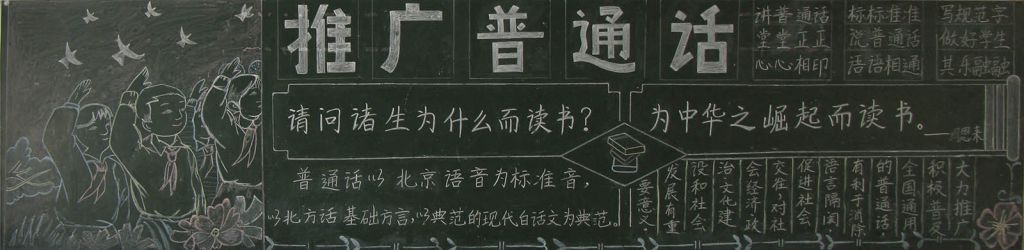 推广普通话
讲普通话 标标准准 写规范字
堂堂正正 院普通话 做好学生
心心相印 语语相通 其乐融融
请问诸生为什么而读书?
为中华之崛起而读书。
——恩来
普通话以北京语音为标准音,
以北方话基础方言,以典范的现代白话文为典范。
大力推广
积极普及
全国通用
的普通话,
有利于消除
语言隔阂,
促进社会
交往,对社
会经济政
治文化建
设和社会
发展有重
要意义.